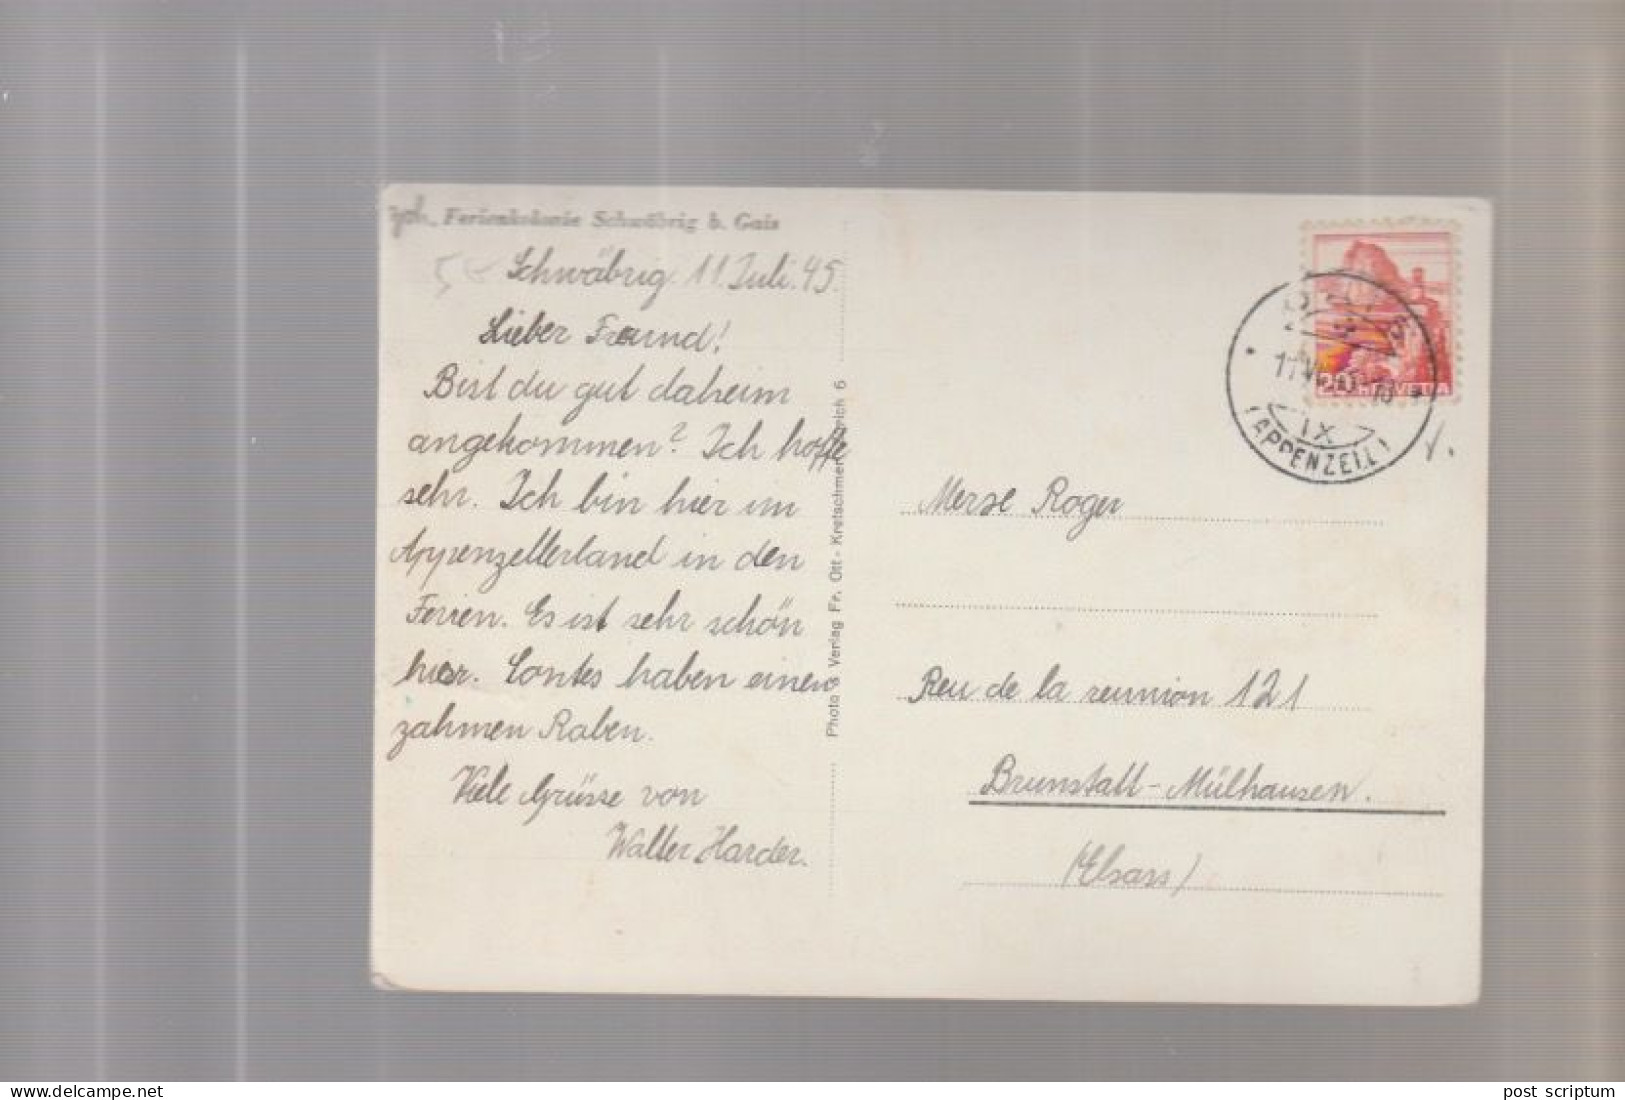 Ferienkolonie Schwäbrig b. Gais
Schwäbrig 11. Juli. 45.
Lieber Freund!
Bist du gut daheim
angekommen? Ich hoffe
sehr. Ich bin hier im
Appenzellerland in den
Ferien. Es ist sehr schön
hier. Contes haben einen
zahmen Raben.
Viele Grüsse von
Walter Harder.
Photo & Verlag Fr. Ott - Kretschmer 6
20 HELVETIA
IX
(APPENZELL)
Merse Roger
Reu de la reunion 121
Brunstatt - Mülhausen.
(Elsass)
delcampe.net
post_scriptum